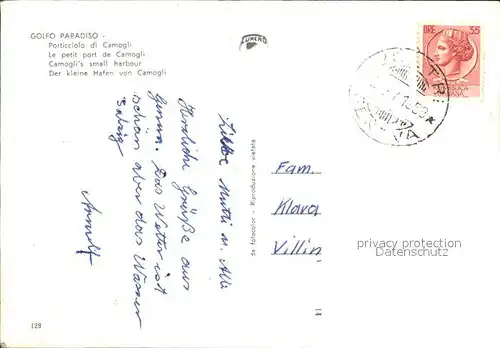 GOLFO PARADISO -
Porticciolo di Camogli
Le petit port de Camogli
Camogli's small harbour
Der kleine Hafen von Camogli
LIRE 35
Liebe Mutti u. Alle
Herzliche Grüße aus
Genua. Das Wetter ist
schön aber das Wasser
salzig
Arnulf
da fotocolor - Riproduzione vietata
Fam.
Klara
Villin
privacy protection
Datenschutz
128